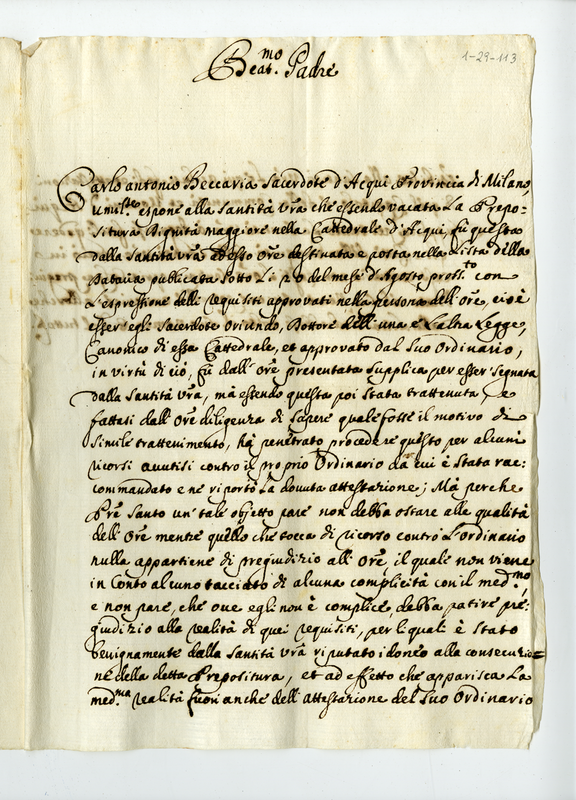 1-29-113
Beat.mo Padre
Carlo Antonio Beccaria Sacerdote d'Acqui Provincia di Milano,
umil.te espone alla Santità Vrã che essendo vacata La Prepo=
situra Dignità maggiore nella Cattedrale d'Acqui, fù questa
dalla Santità Vrã ad esso Ore destinata e posta nella Lista della
Dataria publicata sotto Li 20 del mese d'Agosto pross.to con
L'espressione delli requisiti approvati nella persona dell'Ore, cioè
esser egli Sacerdote Oriundo, Dottore dell'una e L'altra Legge,
Canonico di essa Cattedrale, et approvato dal Suo Ordinario,
in virtù di ciò, fù dall'Ore presentata Supplica per esser segnata
dalla Santità Vrã, mà essendo questa poi Stata trattenuta, e
fattasi dall'Ore diligenza di sapere quale fosse il motivo di
simile trattenimento, hà penetrato procedere questo per alcuni
ricorsi avutisi contro il proprio Ordinario da cui è Stata rac=
commandato e ne riportò La dovuta attestazione; Mà perche
Pre Santo un tale objetto pare non debba ostare alle qualità
dell'Ore mentre quello che tocca di ricorso contro L'Ordinario
nulla appartiene di pregiudizio all'Ore, il quale non viene
in Conto alcuno tacciato di alcuna complicità con il med.mo,
e non pare, che ove egli non è complice, debba patire pre=
giudizio alla realità di quei requisiti, per li quali è Stato
benignamente dalla Santità Vrã riputato idoneo alla consecuzio=
ne della detta Prepositura, et ad effetto che apparisca La
med.ma realità fuori anche dell'attestazione del Suo Ordinario